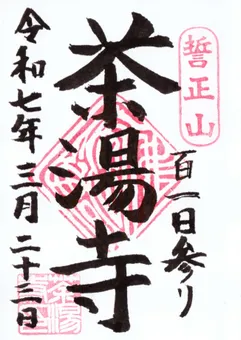 誓正山
百一日参り
茶湯寺
令和七年三月二十三日